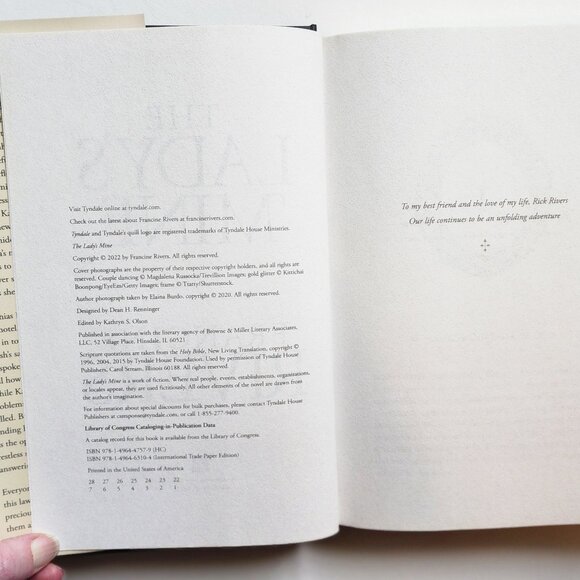 Visit Tyndale online at tyndale.com.
Check out the latest about Francine Rivers at francinerivers.com.
Tyndale and Tyndale's quill logo are registered trademarks of Tyndale House Ministries.
The Lady's Mine
Copyright © 2022 by Francine Rivers. All rights reserved.
Cover photographs are the property of their respective copyright holders, and all rights are
reserved. Couple dancing © Magdalena Russocka/Trevillion Images; gold glitter © Kittichai
Boonpong/EyeEm/Getty Images; frame © Tratty/Shutterstock.
Author photograph taken by Elaina Burdo, copyright © 2020. All rights reserved.
Designed by Dean H. Renninger
Edited by Kathryn S. Olson
Published in association with the literary agency of Browne & Miller Literary Associates,
LLC, 52 Village Place, Hinsdale, IL 60521
Scripture quotations are taken from the Holy Bible, New Living Translation, copyright ©
1996, 2004, 2015 by Tyndale House Foundation. Used by permission of Tyndale House
Publishers, Carol Stream, Illinois 60188. All rights reserved.
The Lady's Mine is a work of fiction. Where real people, events, establishments, organizations,
or locales appear, they are used fictitiously. All other elements of the novel are drawn from
the author's imagination.
For information about special discounts for bulk purchases, please contact Tyndale House
Publishers at csresponse@tyndale.com, or call 1-855-277-9400.
Library of Congress Cataloging-in-Publication Data
A catalog record for this book is available from the Library of Congress.
ISBN 978-1-4964-4757-9 (HC)
ISBN 978-1-4964-6310-4 (International Trade Paper Edition)
Printed in the United States of America
28 27 26 25 24 23 22
7 6 5 4 3 2 1
To my best friend and the love of my life, Rick Rivers
Our life continues to be an unfolding adventure
Everyone
this law
preciou
them a